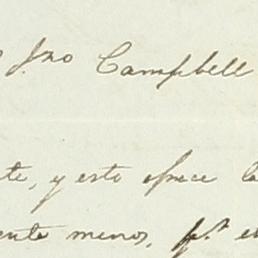 Jno Campbell
te, y esto ofrece la
ente menos, pr. e